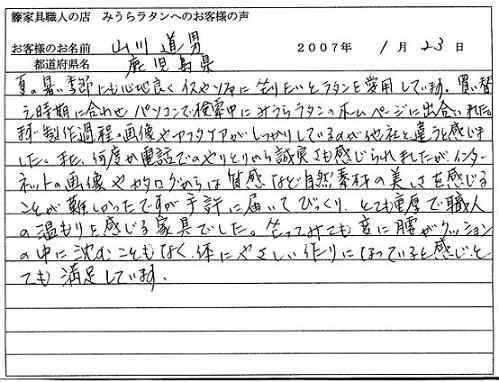 籐家具職人の店　みうらラタンへのお客様の声
お客様のお名前　山川 道男　2007年 1月 23日
都道府県名　鹿児島県
夏の暑い季節にも心地良くイスやソファに坐りたいとラタンを愛用しています。買い替
え時期に合わせパソコンで検索中にみうらラタンのホームページに出合いました。
製作過程の画像やアフタケアがしっかりしているのが他社と違うと感じま
した。また、何度か電話でのやりとりから誠実さも感じられましたがインター
ネットの画像やカタログからは質感など自然素材の美しさを感じる
ことが難しかったですが手許に届いてびっくり、とても重厚で職人
の温もりを感じる家具でした。坐ってみても変に腰がクッション
の中に沈むこともなく、体にやさしい作りになっていると感じと
ても満足しています。